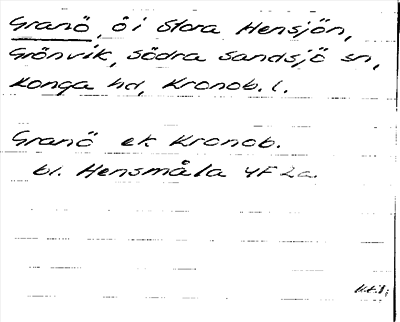 Granö, ö i Stora Hensjön,
Grönvik, Södra Sandsjö sn,
Konga hd, Kronob. l.
Granö ek Kronob.
bl. Hensmåla 4F 2a.